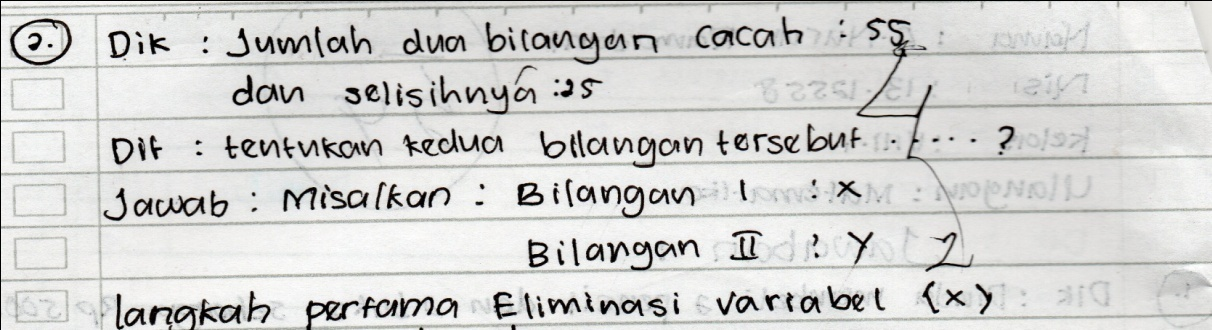 2. Dik : Jumlah dua bilangan cacah : 55
dan selisihnya : 25
Dit : tentukan kedua bilangan tersebut .... ?
Jawab : Misalkan : Bilangan I : x
Bilangan II : y 2
langkah pertama Eliminasi variabel (x)